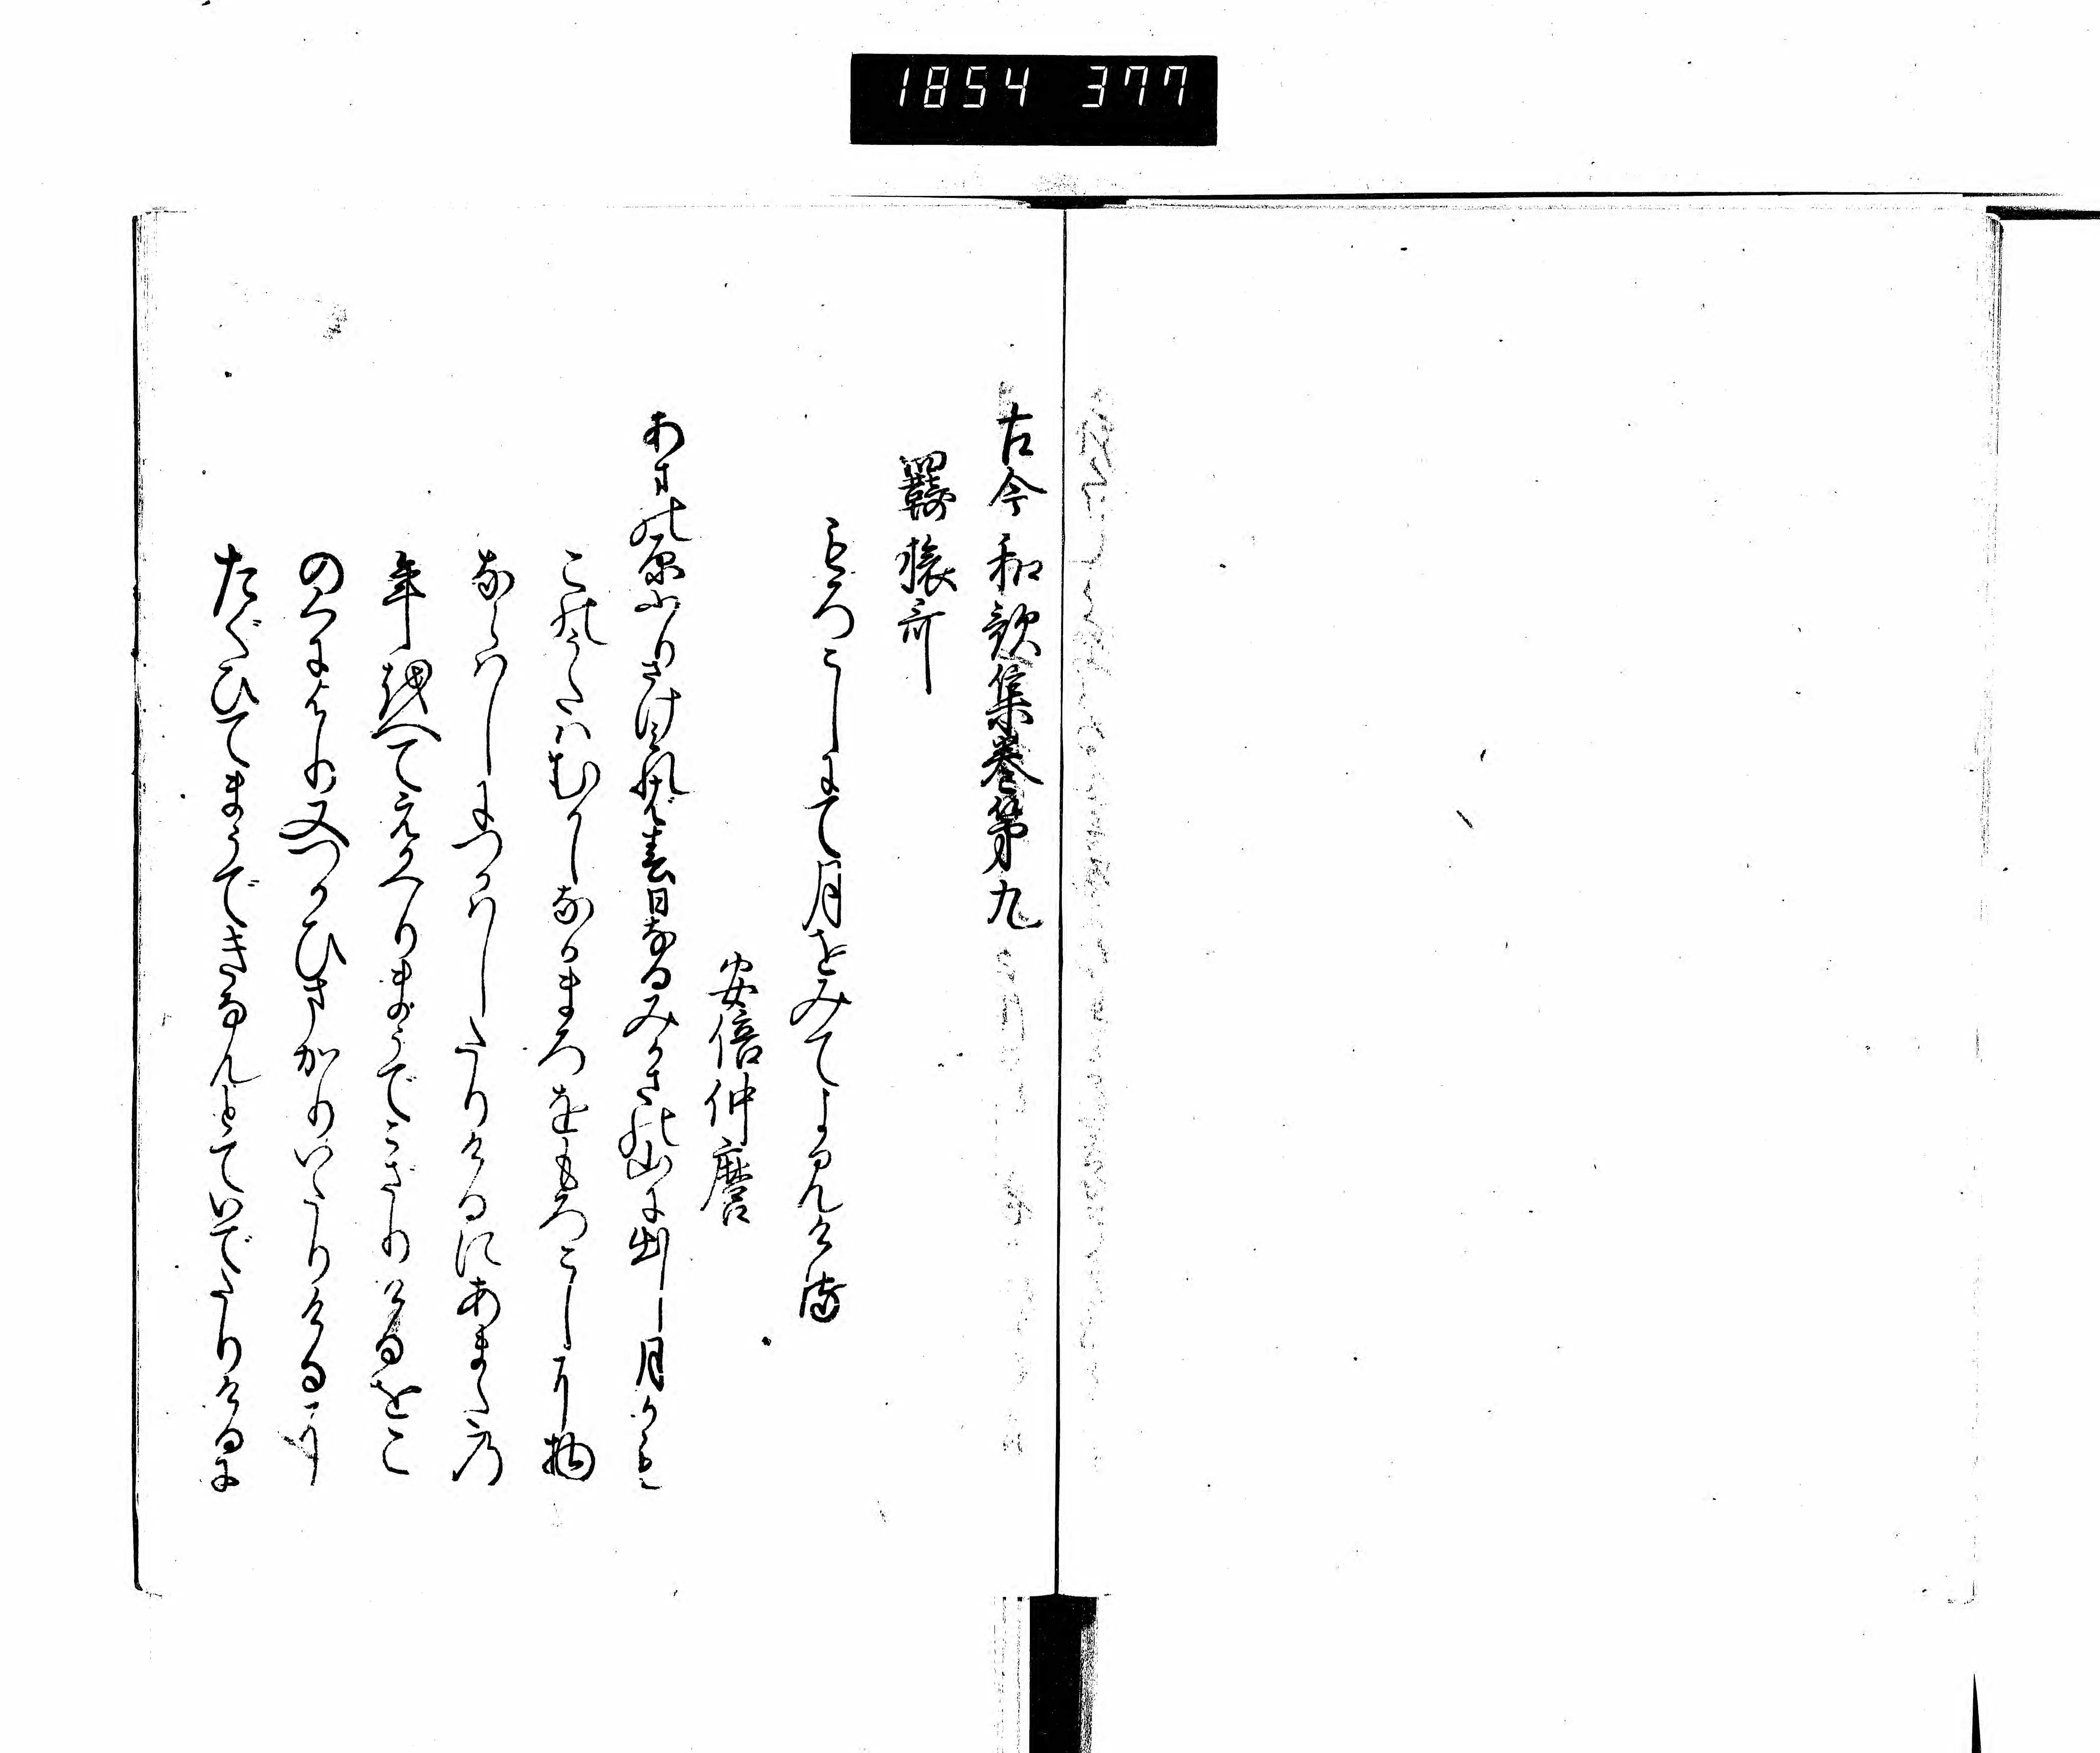 1854 377
古今和歌集巻第九
羇旅哥
もろこしにて月をみてよみける
安倍仲麿
あまの原ふりさけみれば春日なるみかさの山に出し月かも
このうたはむかしなかまろをもろこしに物
ならはしにつかはしたりけるにあまたの
年越へてえかへりまうでこざりけるをこ
のくによりの又つかひまかりいたりけるに
たぐひてまうできなんとていでたりけるに